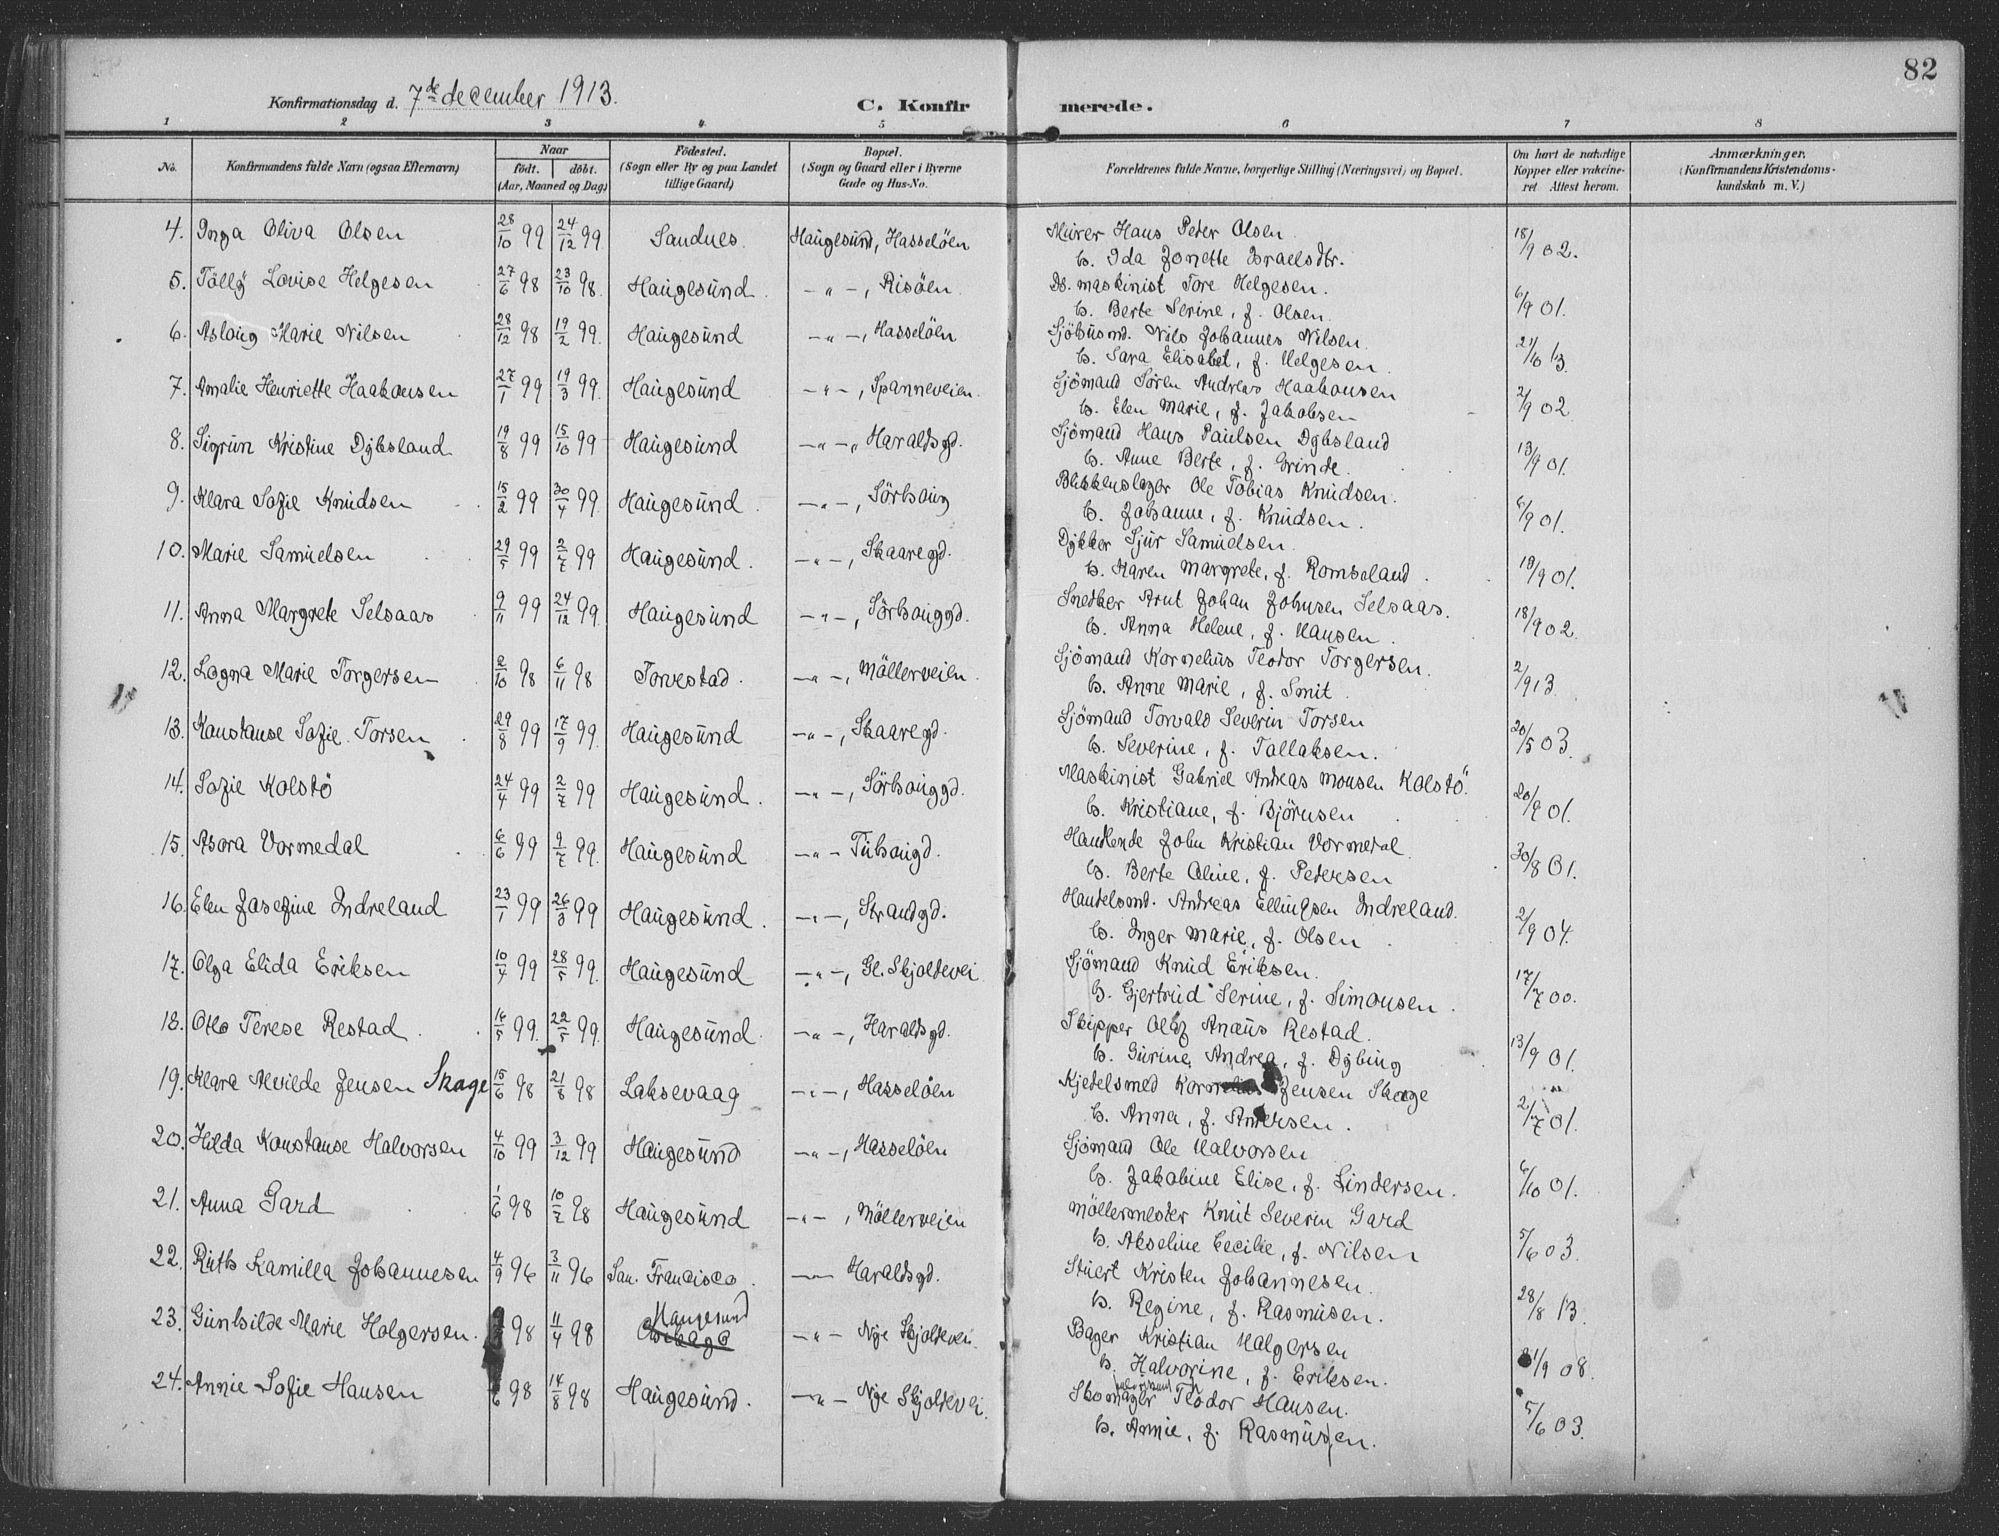 82
Konfirmationsdag d. 7de december 1913. C. Konfirmerede.
1 2 3 4 5 6 7 8
No. Konfirmandens fulde Navn (ogsaa Efternavn) Naar født. døbt. (Aar, Maaned og Dag) Fødested. (Sogn eller By og paa Landet tillige Gaard) Bopæl. (Sogn og Gaard eller i Byerne Gade og Hus-No. Forældrenes fulde Navne, borgerlige Stilling (Næringsvei) og Bopæl. Om havt de naturlige Kopper eller vakcineret Attest herom. Anmærkninger. (Konfirmandens Kristendomskundskab m. V.)
4. Inga Oliva Olsen 28/10 99 24/12 99. Sandnes. Haugesund, Hasseløen Murer Hans Peder Olsen. 18/9 02.
h. Ida Jonette Israelsdtr.
5. Tolly Lovise Helgesen 27/6 98 23/10 98. Haugesund. - " -, Risöen. Ds. maskinist Tore Helgesen. 6/9 01.
h. Berte Serine, f. Olsen.
6. Aslaug Marie Nilsen 28/12 98 19/2 99. Haugesund - " -, Hasselöen Sjöbusmd. Nils Johannes Nilsen. 21/6 13.
h. Sara Elisabet, f. Helgesen.
7. Amalie Henriette Haakonsen 27/1 99 19/3 99. Haugesund - " -, Spanneveien. Sjömand Sören Andreas Haakonsen 2/9 02
h. Elen Marie, f. Jakobsen
8. Sigrun Kristine Dybsland 19/8 99 15/10 99 Haugesund - " - Haraldsgd. Sjömand Hans Paulsen Dybsland 13/9 01.
h. Anne Berte, f. Grinde.
9. Klara Sofie Knudsen 15/2 99 30/4 99. Haugesund. - " -, Sörhaug Blikkenslager Ole Tobias Knudsen. 6/9 01.
h. Johanne, f. Knudsen.
10. Marie Samuelsen 29/5 99 2/7 99 Haugesund. - " -, Skaaregd. Dykker Sjur Samuelsen. 19/9 01.
h. Karen Margrete, f. Romseland.
11. Anna Margrete Selsaas 9/11 99 24/12 99. Haugesund - " -, Sörhauggd. Snedker Arnt Johan Johnsen Selsaas. 18/9 02.
h. Anna Helene, f. Hansen.
12. Lagna Marie Torgersen 2/10 98 6/11 98 Torvestad. - " -, Möllerveien. Sjömand Kornelius Teodor Torgersen. 2/9 13.
h. Anne Marie, f. Smit.
13. Konstanse Sofie Torsen 29/8 99 17/9 99. Haugesund - " -, Skaaregd. Sjömand Torvald Severin Torsen 20/5 03.
h. Severine, f. Tallaksen.
14. Sofie Kolstö 24/4 99 2/7 99 Haugesund. - " -, Sörhauggd. Maskinist Gabriel Andreas Monsen Kolstö. 20/9 01.
h. Kristiane, f. Björnsen
15. Asora Vormedal 6/6 99 9/7 99. Haugesund - " - Tuhaugd. Handlende John Kristian Vormedal. 30/8 01.
h. Berte Oline, f. Pedersen
16. Elen Josefine Indreland 23/1 99 26/3 99 Haugesund. - " -, Strandgd. Handelsmd. Andreas Ellingsen Indreland. 2/9 04.
h. Inger Marie, f. Olsen.
17. Olga Elida Eriksen 10/4 99 28/5 99. Haugesund - " -, Gl. Skjoldevei Sjömand Knud Eriksen. 17/7 00.
h. Gjertrud Serine, f. Simonsen.
18. Otto Terese Restad. 16/5 99. 22/5 99. Haugesund. - " -, Haraldsgd. Skipper Oluf Anaus Restad. 13/9 01.
h. Gurine Andrea, f. Dybing
19. Klara Alvilde Jensen Skage 15/6 98 21/8 98 Laksevaag - " -, Hasselöen Kjedelsmed Kornelius Jensen Skage 2/7 01.
h. Anna, f. Andersen.
20. Hilda Konstanse Halvorsen 4/10 99 3/12 99 Haugesund - " -, Hasselöen Sjömand Ole Halvorsen 6/10 01.
h. Jakobine Elise, f. Lindersen.
21. Anna Gard 1/6 98 10/7 98 Haugesund - " -, Möllerveien Möllermester Knut Severin Gard 5/6 03.
h. Akseline Cecilie, f. Nilsen
22. Ruth Kamilla Johannesen 4/9 96 3/11 96 San. Francisco. - Haraldsgd. Stuert Kristen Johannesen. 28/8 13.
h. Regine, f. Rasmusen.
23. Gunhilde Marie Holgersen. 98 11/4 98 Haugesund - " - Nye Skjoldevei Bager Kristian Halgersen 1/9 08.
h. Halvorine, f. Eriksen.
24. Annie Sofie Hansen 6 98 14/8 98 Haugesund. - " - Nye Skjoldevei. Skomager Teodor Hansen. 5/6 03.
h. Annie, f. Rasmussen.